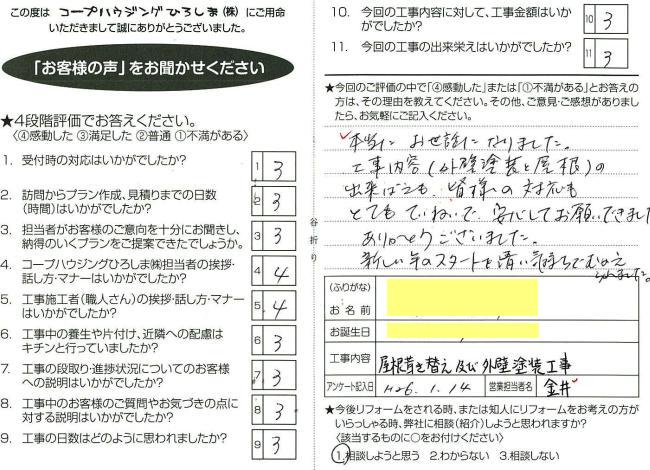 この度は コープハウジングひろしま(株) にご用命
いただきまして誠にありがとうございました。
「お客様の声」をお聞かせください
★4段階評価でお答えください。
〈④感動した ③満足した ②普通 ①不満がある〉
1. 受付時の対応はいかがでしたか?
1 3
2. 訪問からプラン作成、見積りまでの日数
(時間)はいかがでしたか?
2 3
3. 担当者がお客様のご意向を十分にお聞きし、
納得のいくプランをご提案できたでしょうか。
3 3
4. コープハウジングひろしま㈱担当者の挨拶・
話し方・マナーはいかがでしたか?
4 4
5. 工事施工者(職人さん)の挨拶・話し方・マナー
はいかがでしたか?
5 4
6. 工事中の養生や片付け、近隣への配慮は
キチンと行っていましたか?
6 3
7. 工事の段取り・進捗状況についてのお客様
への説明はいかがでしたか?
7 3
8. 工事中のお客様のご質問やお気づきの点に
対する説明はいかがでしたか?
8 3
9. 工事の日数はどのように思われましたか?
9 3
谷折り
10. 今回の工事内容に対して、工事金額はいか
がでしたか?
10 3
11. 今回の工事の出来栄えはいかがでしたか?
11 3
★今回のご評価の中で「④感動した」または「①不満がある」とお答え
の方は、その理由を教えてください。その他、ご意見・ご感想がありまし
たら、お気軽にご記入ください。
本当に お世話になりました。
工事内容(外壁塗装と屋根)の
出来ばえも、皆様の対応も
とても ていねいで、安心してお願いできました
ありがとうございました。
新しい年のスタートを清い気持ちでむかえ
られました。
(ふりがな)
お名前
お誕生日
工事内容 屋根葺き替え及び外壁塗装工事
アンケート記入日 H26.1.14 営業担当者名 金井
★今後リフォームをされる時、または知人にリフォームをお考えの方が
いらっしゃる時、弊社に相談(紹介)しようと思いますか?
〈該当するものに○をお付けください〉
1.相談しようと思う 2.わからない 3.相談しない